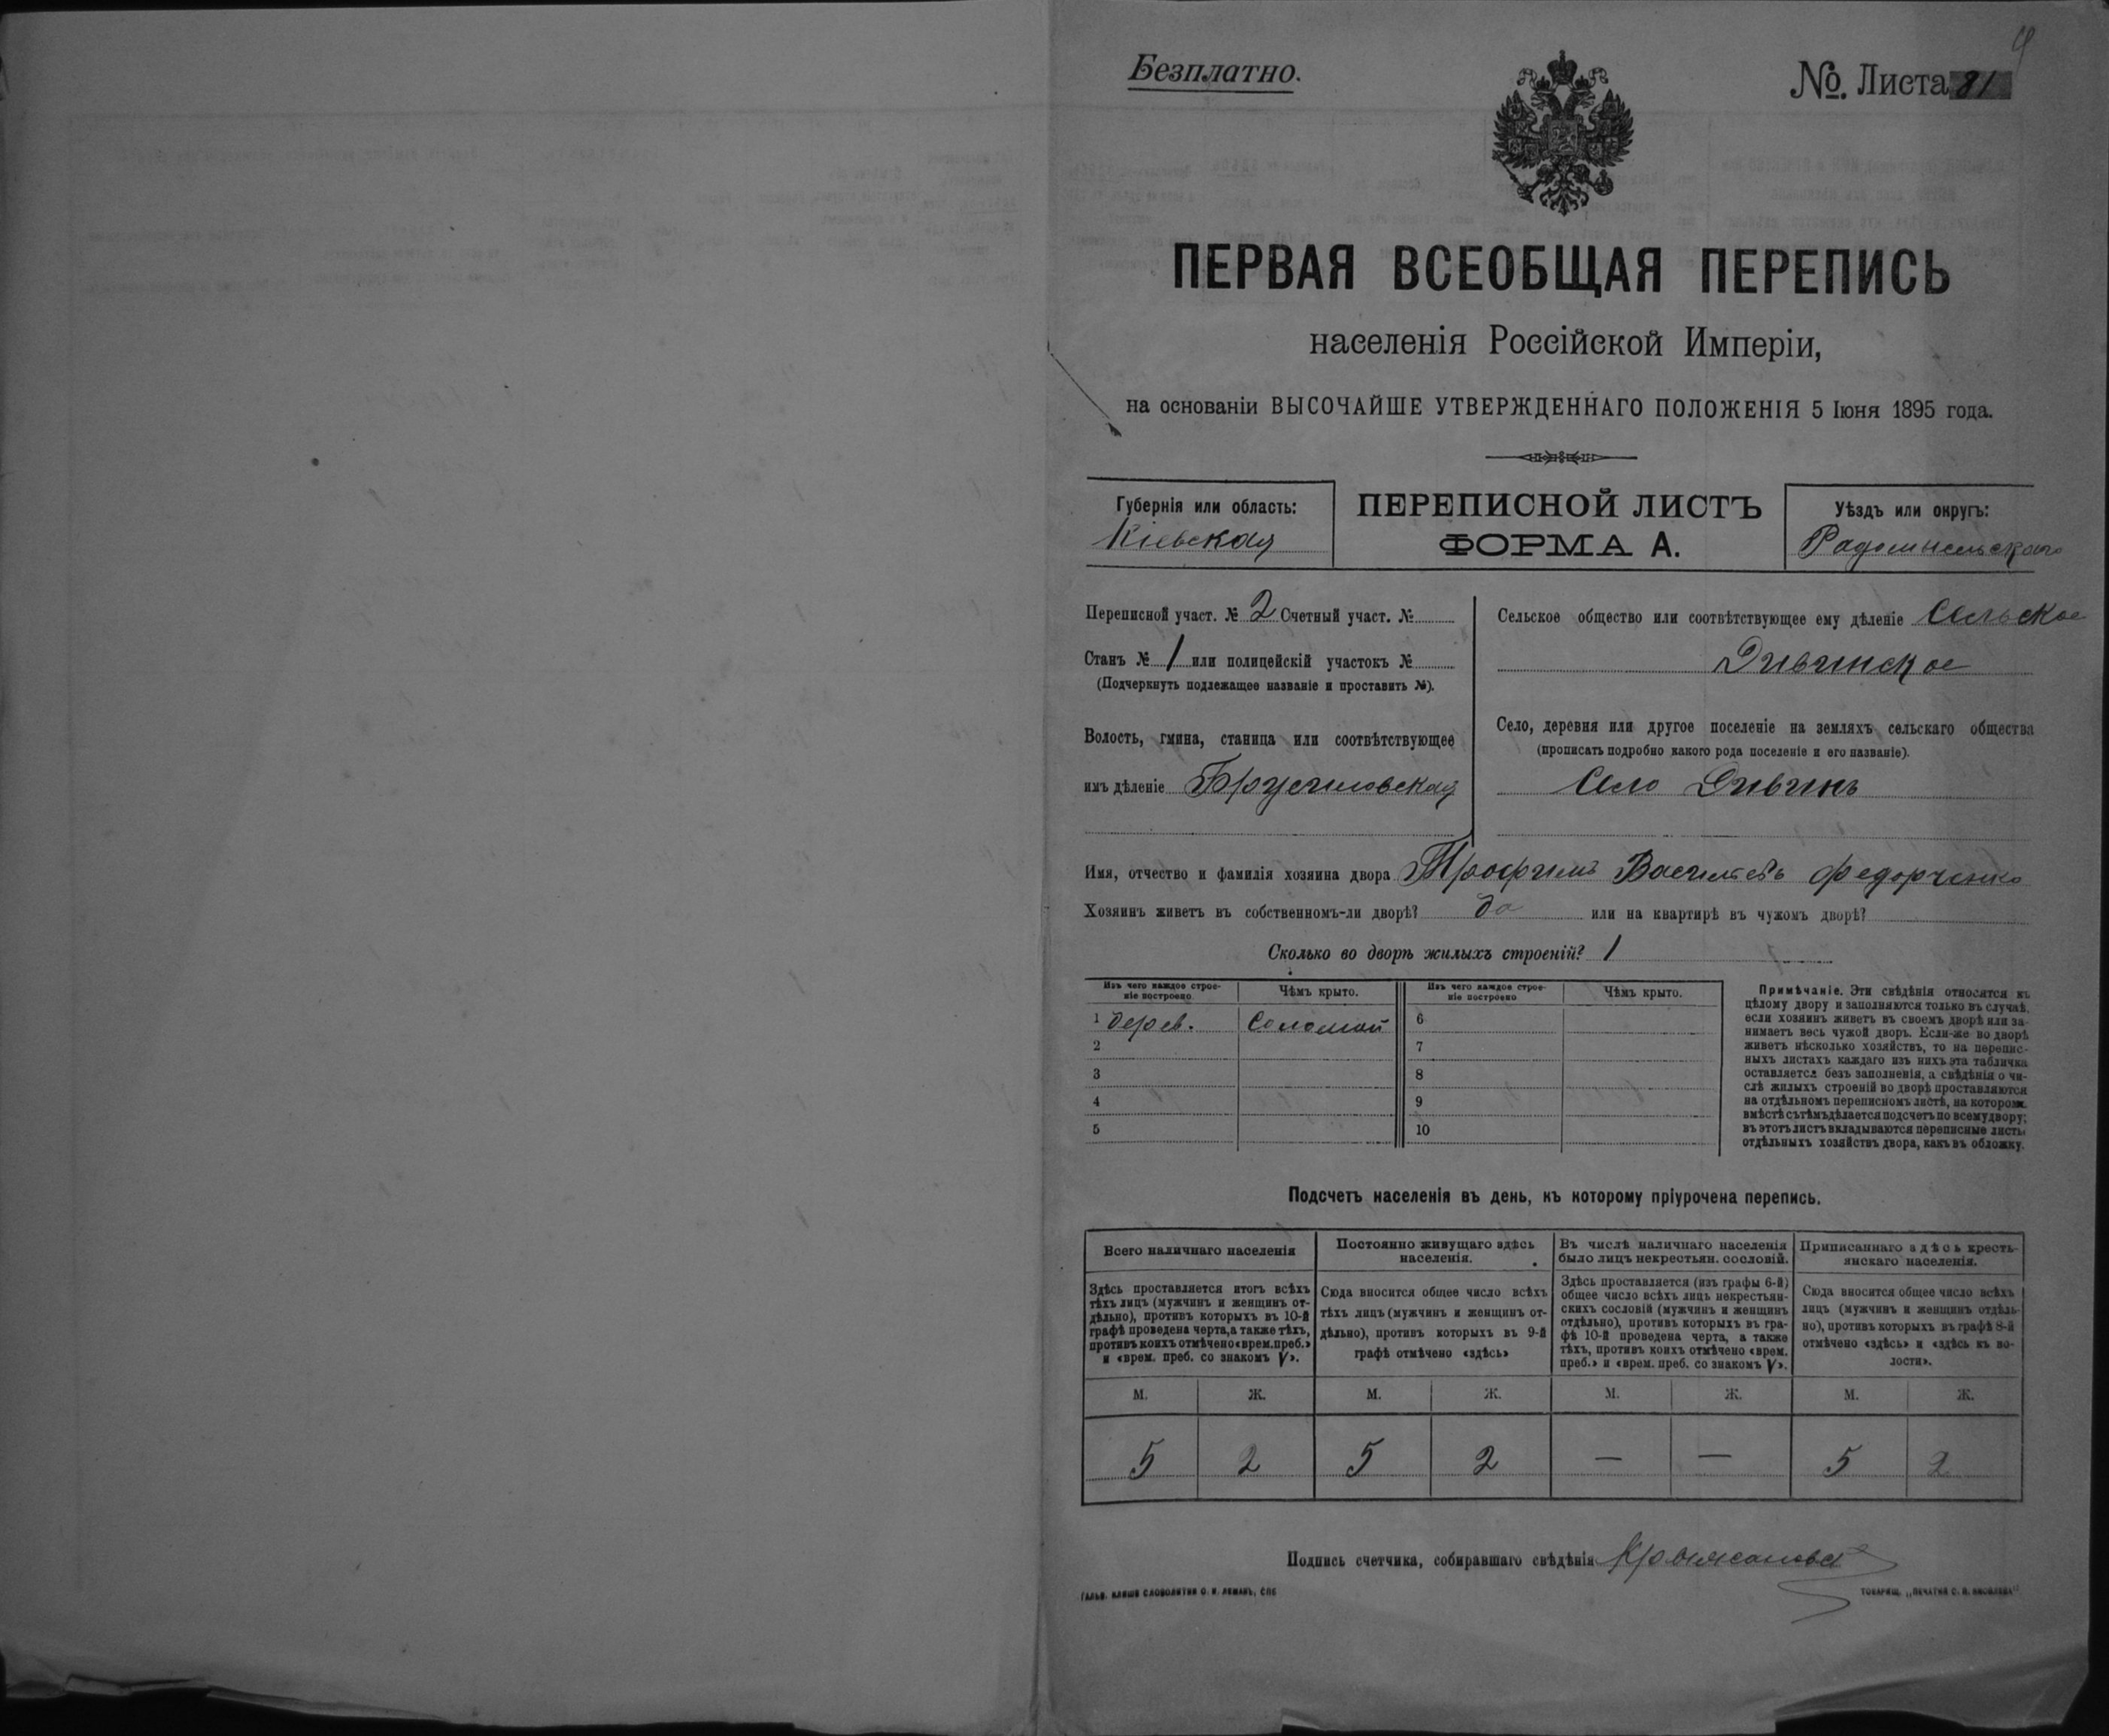 Безплатно.
№. Листа 81
ПЕРВАЯ ВСЕОБЩАЯ ПЕРЕПИСЬ
населенія Россійской Имперіи,
на основаніи ВЫСОЧАЙШЕ УТВЕРЖДЕННАГО ПОЛОЖЕНІЯ 5 Іюня 1895 года.
Губернія или область:
Кіевская
ПЕРЕПИСНОЙ ЛИСТЪ
ФОРМА А.
Уѣздъ или округъ:
Радомысльскаго
Переписной участ. № 2 Счетный участ. №
Станъ № 1 или полицейскій участокъ №
(Подчеркнуть подлежащее названіе и проставить №).
Волость, гмина, станица или соотвѣтствующее
имъ дѣленіе Брусиловская
Сельское общество или соотвѣтствующее ему дѣленіе Сельское
Дивинское
Село, деревня или другое поселеніе на земляхъ сельскаго общества
(прописать подробно какого рода поселеніе и его названіе).
Село Дивинъ
Имя, отчество и фамилія хозяина двора Трофимъ Васильевъ Федорченко
Хозяинъ живетъ въ собственномъ-ли дворѣ? да или на квартирѣ въ чужомъ дворѣ?
Сколько во дворѣ жилыхъ строеній? 1
Изъ чего каждое строе-
ніе построено
Чѣмъ крыто.
Изъ чего каждое строе-
ніе построено
Чѣмъ крыто.
1 дерев. Соломой 6
2 7
3 8
4 9
5 10
Примѣчаніе. Эти свѣдѣнія относятся къ
цѣлому двору и заполняются только въ случаѣ,
если хозяинъ живетъ въ своемъ дворѣ или за-
нимаетъ весь чужой дворъ. Если-же во дворѣ
живетъ нѣсколько хозяйствъ, то на перепис-
ныхъ листахъ каждаго изъ нихъ эта табличка
оставляется безъ заполненія, а свѣдѣнія о чи-
слѣ жилыхъ строеній во дворѣ проставляются
на отдѣльномъ переписномъ листѣ, на которомъ
вмѣстѣ съ тѣмъ дѣлается подсчетъ по всему двору;
въ этотъ листъ вкладываются переписные листы
отдѣльныхъ хозяйствъ двора, какъ въ обложку.
Подсчетъ населенія въ день, къ которому пріурочена перепись.
Всего наличнаго населенія
Здѣсь проставляется итогъ всѣхъ
тѣхъ лицъ (мужчинъ и женщинъ от-
дѣльно), противъ которыхъ въ 10-й
графѣ проведена черта, а также тѣхъ,
противъ коихъ отмѣчено «врем. преб.»
и «врем. преб. со знакомъ V».
Постоянно живущаго здѣсь
населенія.
Сюда вносится общее число всѣхъ
тѣхъ лицъ (мужчинъ и женщинъ от-
дѣльно), противъ которыхъ въ 9-й
графѣ отмѣчено «здѣсь»
Въ числѣ наличнаго населенія
было лицъ некрестьян. сословій.
Здѣсь проставляется (изъ графы 6-й)
общее число всѣхъ лицъ некрестьян-
скихъ сословій (мужчинъ и женщинъ
отдѣльно), противъ которыхъ въ гра-
фѣ 10-й проведена черта, а также
тѣхъ, противъ коихъ отмѣчено «врем.
преб.» и «врем. преб. со знакомъ V».
Приписаннаго здѣсь кресть-
янскаго населенія.
Сюда вносится общее число всѣхъ
лицъ (мужчинъ и женщинъ отдѣль-
но), противъ которыхъ въ графѣ 8-й
отмѣчено «здѣсь» и «здѣсь къ во-
лости».
М. Ж. М. Ж. М. Ж. М. Ж.
5 2 5 2 — — 5 2
Подпись счетчика, собиравшаго свѣдѣнія
ГАЛЬВ. КЛИШЕ СЛОВОЛИТНИ О. И. ЛЕМАНЪ, СПБ
ТОВАРИЩ. „ПЕЧАТНЯ С. П. ЯКОВЛЕВА“